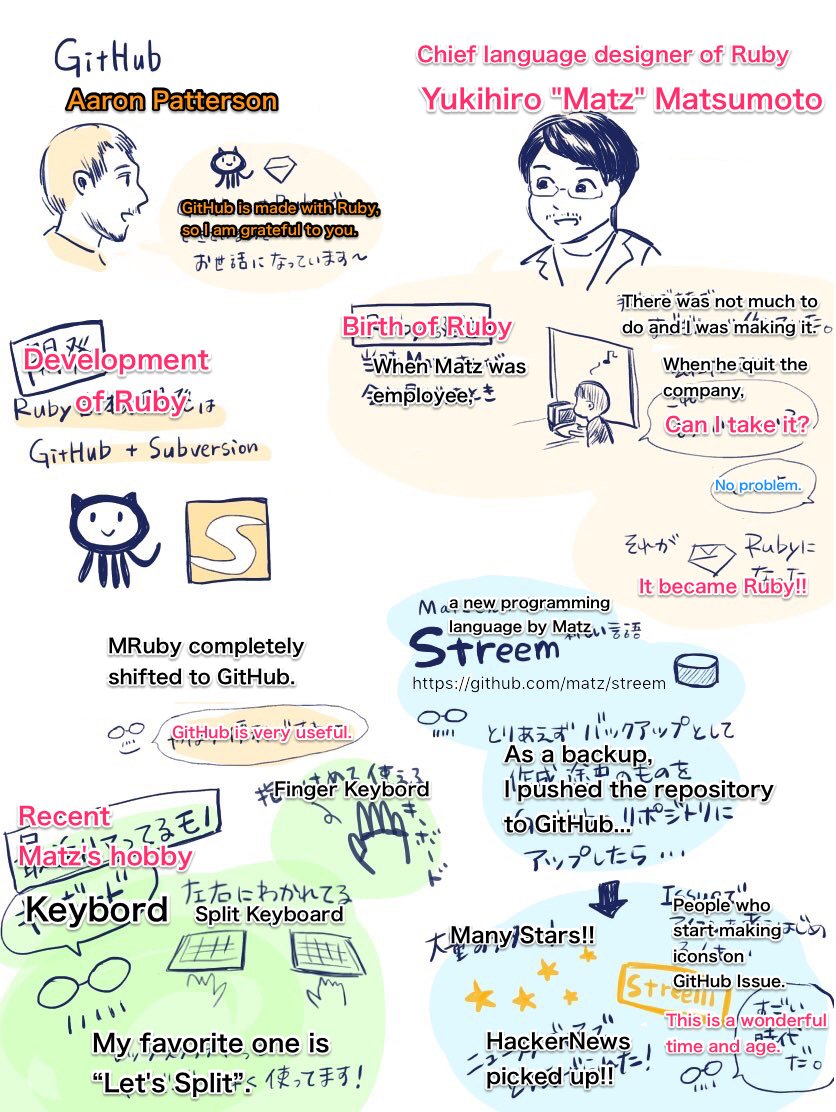 GitHub
Aaron Patterson
Chief language designer of Ruby
Yukihiro "Matz" Matsumoto
GitHub is made with Ruby,
so I am grateful to you.
お世話になっています〜
There was not much to
do and I was making it.
Birth of Ruby
When Matz was
employee,
When he quit the
company,
Can I take it?
No problem.
それが Rubyに
なった
It became Ruby!!
開発
Development
of Ruby
Ruby は
GitHub + Subversion
S
MRuby completely
shifted to GitHub.
GitHub is very useful.
a new programming
language by Matz
新しい言語
Streem
https://github.com/matz/streem
とりあえず バックアップとして
As a backup,
作成途中のものを
I pushed the repository
リポジトリに
to GitHub...
アップしたら …
Recent
Matz's hobby
Keybord
使える
Finger Keybord
キーボード
左右にわかれてる
Split Keyboard
My favorite one is
“Let's Split”.
使ってます!
Many Stars!!
HackerNews
picked up!!
People who
start making
icons on
GitHub Issue.
Streem
This is a wonderful
time and age.
すごい
時代
だ。